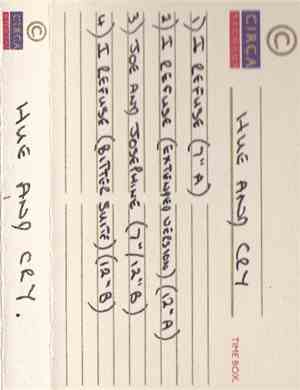 ©
CIRCA
RECORDS
HUE AND CRY
TIME BOX
1) I REFUSE (7" A)
2) I REFUSE (EXTENDED VERSION) (12" A)
3) JOE AND JOSEPHINE (7"/12" B)
4) I REFUSE (BITTER SUITE) (12" B)
©
CIRCA
RECORDS
HUE AND CRY.